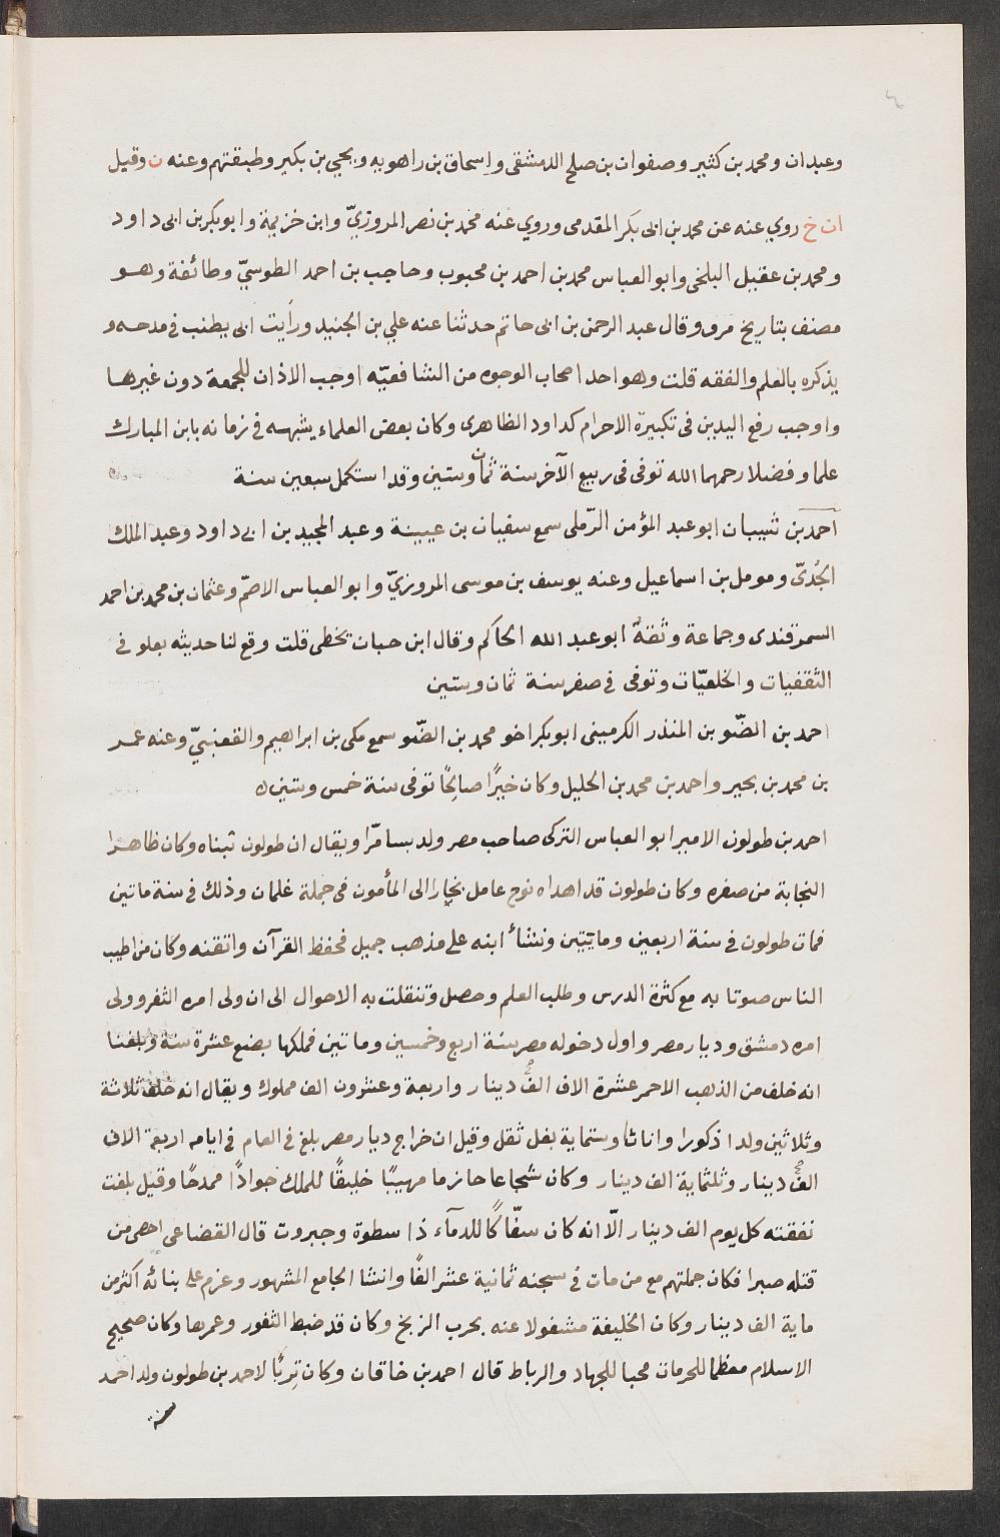 وعبدان ومحمد بن كثير وصفوان بن صلح الدمشقى واسحاق بن راهويه ويحيي بن بكير وطبقتهم وعنه ن وقيل
ان خ روي عنه عن محمد بن ابى بكر المقدمى وروي عنه محمد بن نصر المروزيّ وابن خزيمة وابو بكر بن ابى داود
ومحمد بن عقيل البلخى وابو العباس محمد بن احمد بن محبوب وحاجب بن احمد الطوسيّ وطائفة وهو
مصنف بتاريخ مرو وقال عبد الرحمن بن ابى حاتم حدثنا عنه علي بن الجنيد ورأيت ابى يطنب فى مدحه و
يذكره بالعلم والفقه قلت وهو احد اصحاب الوجوه من الشافعيّه اوجب الاذان للجمعة دون غيرها
واوجب رفع اليدين فى تكبيرة الاحرام كداود الظاهرى وكان بعض العلماء يشبهه فى زمانه بابن المبارك
علما وفضلا رحمهما الله توفى فى ربيع الآخر سنة ثمان وستين وقد استكمل سبعين سنة
احمد بن شيبان ابو عبد المؤمن الرّملى سمع سفيان بن عيينة وعبد المجيد بن ابى داود وعبد الملك
الجُدىّ ومومل بن اسماعيل وعنه يوسف بن موسى المروزيّ وابو العباس الاصمّ وعثمان بن محمد بن احمد
السمرقندى وجماعة وثقهُ ابو عبد الله الحاكم وقال ابن حبان يخطى قلت وقع لنا حديثه بعلو فى
الثقفيات والخلعيّات وتوفى فى صفر سنة ثمان وستين
احمد بن الضّو بن المنذر الكرمينى ابو بكر اخو محمد بن الضّو سمع مكى بن ابراهيم والقعنبيّ وعنه عمر
بن محمد بن بحير واحمد بن محمد بن الخليل وكان خيرًا صالحًا توفى سنة خمس وستين ه
احمد بن طولون الامير ابو العباس التركى صاحب مصر ولد بسامرّا ويقال ان طولون تبناه وكان ظاهرا
النجابة من صغره وكان طولون قد اهداه نوح عامل بخارا الى المأمون فى جملة غلمان وذلك فى سنة ماتين
فمات طولون فى سنة اربعين ومايتين ونشاء ابنه على مذهب جميل فحفظ القرآن واتقنه وكان من اطيب
الناس صوتا به مع كثرة الدرس وطلب العلم وحصل وتنقلت به الاحوال الى ان ولى امره الثغر وولى
امره دمشق وديار مصر واول دخوله مصر سنة اربع وخمسين وماتين فملكها بضع عشرة سنة وبلغنا
انه خلف من الذهب الاحمر عشرة الاف الف دينار واربعة وعشرون الف مملوك ويقال انه خلف ثلاثة
وثلاثين ولدا ذكورا واناثا وستماية بغل ثقل وقيل ان خراج ديار مصر بلغ فى العام فى ايامه اربعة الاف
الف دينار وثلثماية الف دينار وكان شجاعا حازما مهيبًا خليقًا للملك جوادًا ممدحًا وقيل بلغت
نفقته كل يوم الف دينار الّا انه كان سفّاكًا للدمآء ذا سطوة وجبروت قال القضاعى احصى من
قتله صبرا فكان جملتهم مع من مات فى سجنه ثمانية عشر الفًا وانشا الجامع المشهور وعزم على بنائه اكثر من
ماية الف دينار وكان الخليفة مشغولا عنه بحرب الزنج وكان قد ضبط الثغور وعمرها وكان صحيح
الاسلام معظما للحرمات محبا للجهاد والرباط قال احمد بن خاقان وكان تِربًا لاحمد بن طولون ولد احمد
سنة